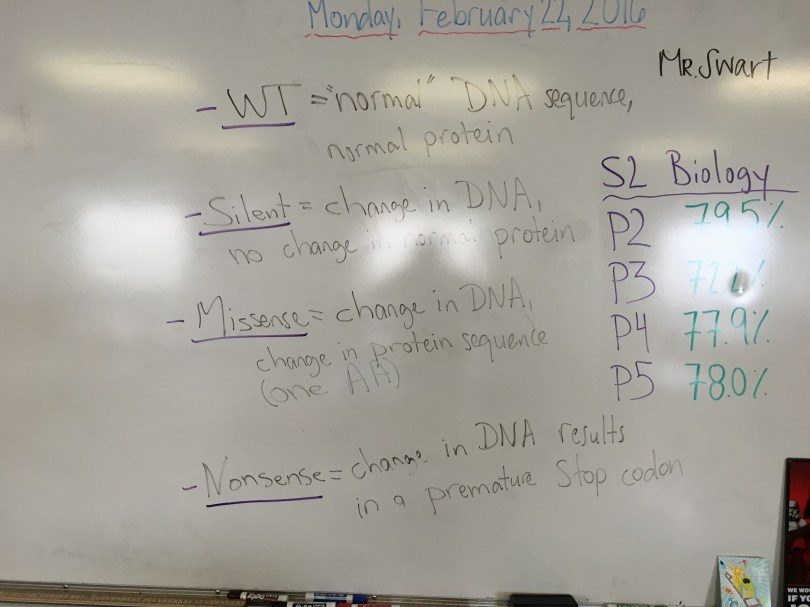 Monday, February 22, 2016
Mr. Swart
- WT = "normal" DNA sequence,
normal protein
- Silent = change in DNA,
no change in normal protein
- Missense = change in DNA,
change in protein sequence
(one AA)
- Nonsense = change in DNA results
in a premature Stop codon
S2 Biology
P2 79.5%
P3
P4 77.9%
P5 78.0%
EXPO
IF YO